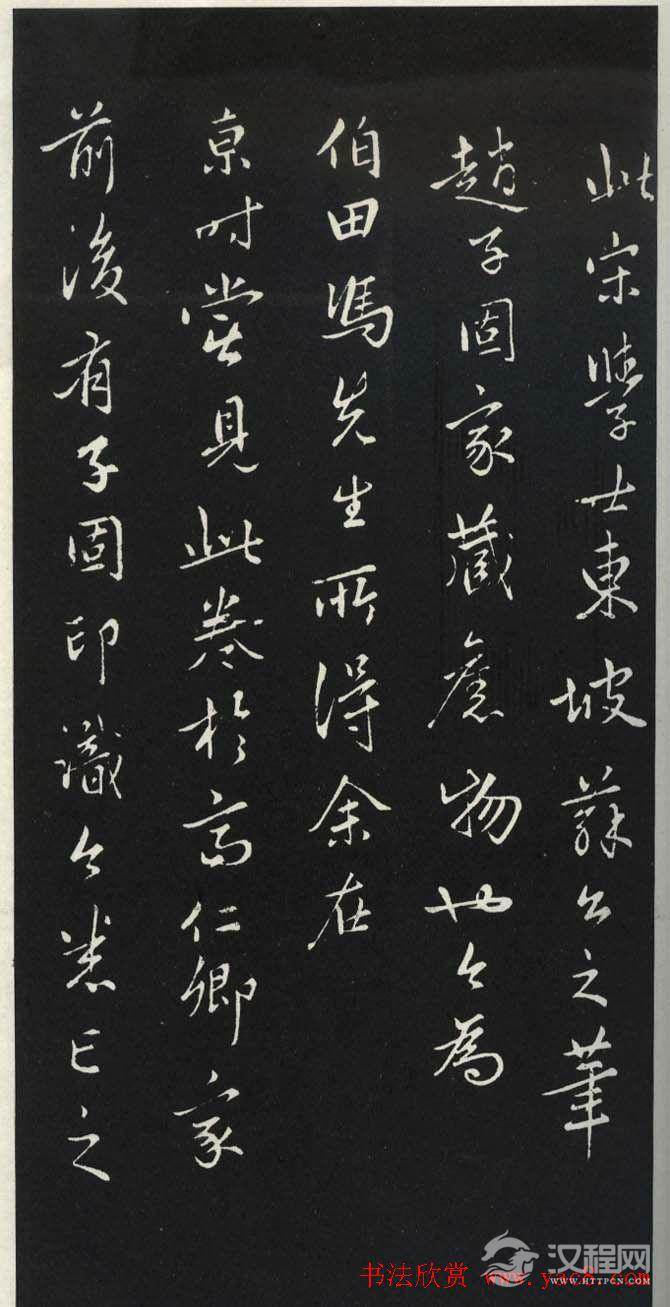 此宋學士東坡蘇公之筆
趙子固家藏舊物也今為
伯田馮先生所得余在
京時嘗見此卷於高仁卿家
前後有子固印識今悉亡之
汉程网
WWW.HTTPCN.COM
书法欣赏